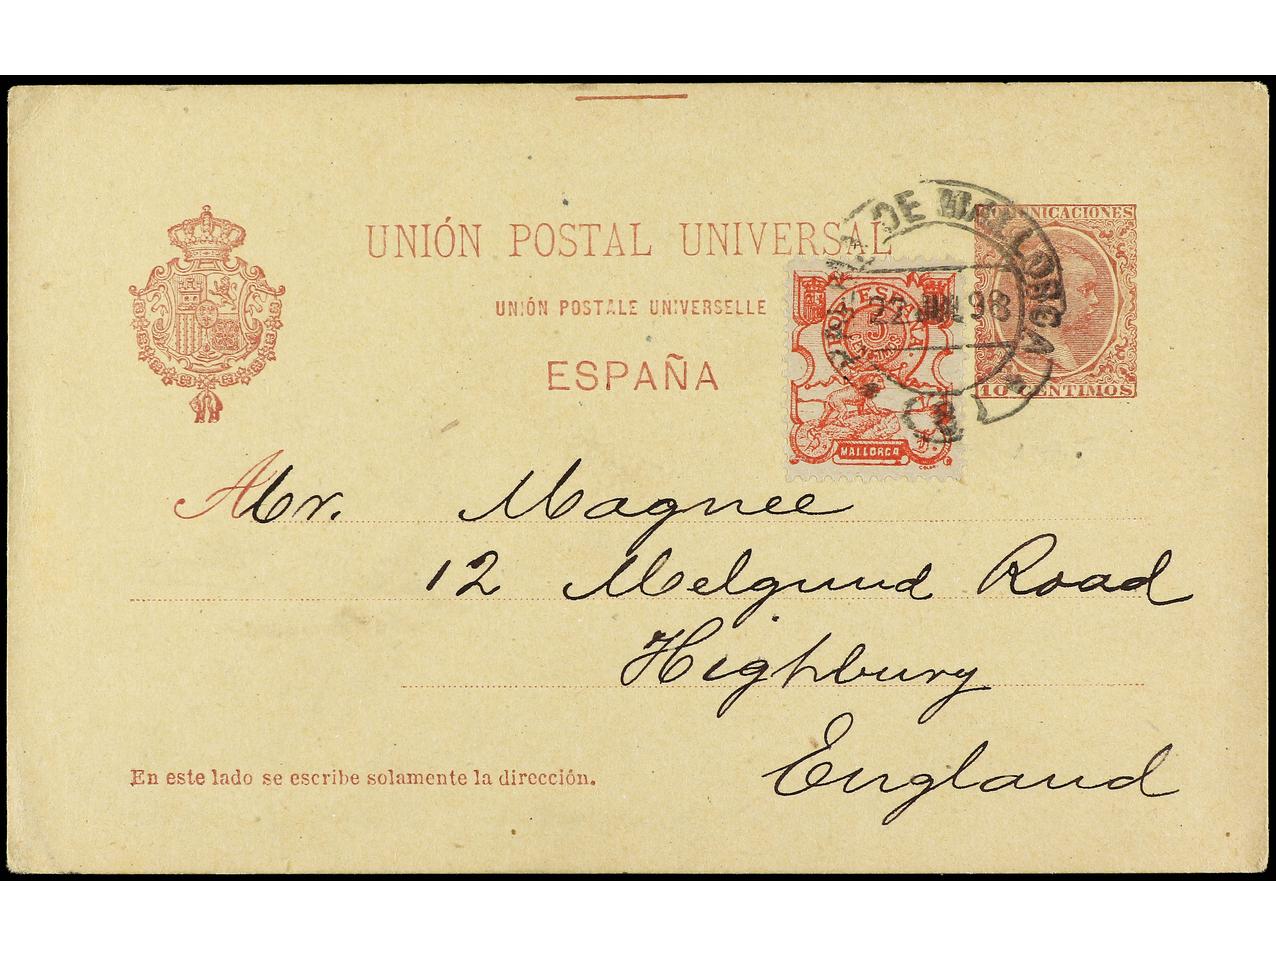 UNIÓN POSTAL UNIVERSAL
UNIÓN POSTALE UNIVERSELLE
ESPAÑA
COMUNICACIONES
10 CENTIMOS
DE MALLORCA
22 JUL 98
ESPAÑA
5
CENTIMOS
MALLORCA
A
Mr. Magnee
12 Melgund Road
Highbury
England
En este lado se escribe solamente la dirección.